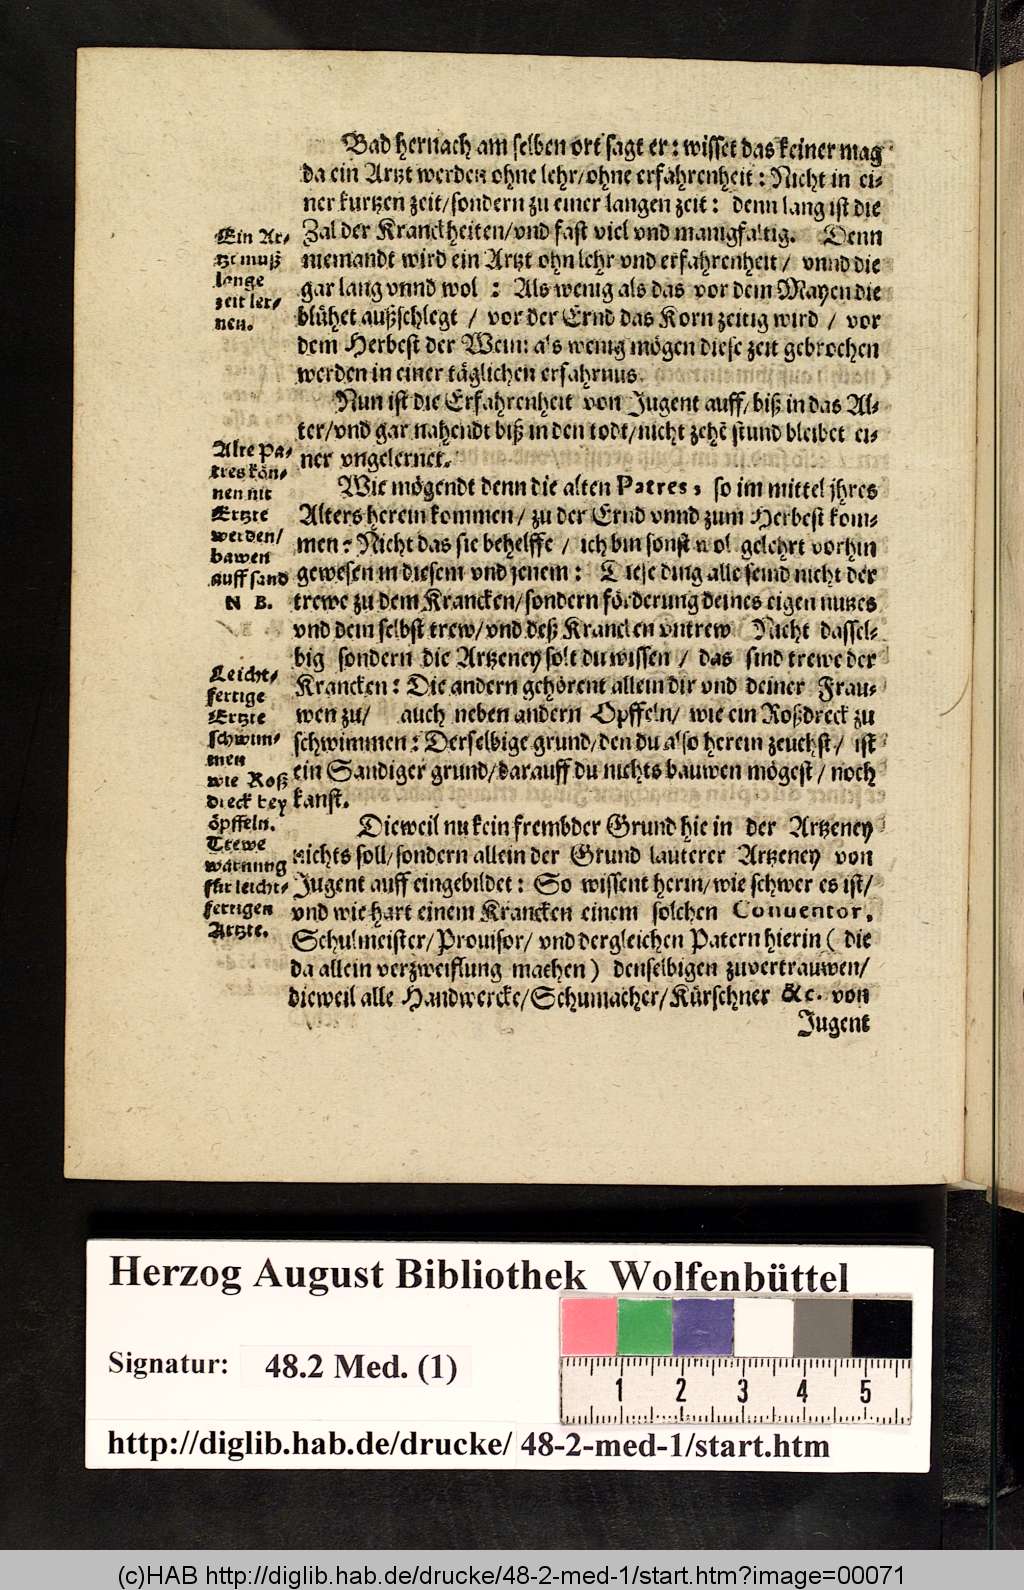 Bad hernach am selben ort sagt er: wisset das keiner mag
da ein Artzt werden ohne lehr/ohne erfahrenheit: Nicht in ei-
ner kurtzen zeit/sondern zu einer langen zeit: denn lang ist die
Zal der Kranckheiten/vnd fast viel vnd manigfaltig. Denn
niemandt wird ein Artzt ohn lehr vnd erfahrenheit/ vnnd die
gar lang vnnd wol: Als wenig als das vor dem Mayen die
blühet außschlegt / vor der Ernd das Korn zeitig wird / vor
dem Herbest der Wein: als wenig mögen diese zeit gebrochen
werden in einer täglichen erfahrnus.
Nun ist die Erfahrenheit von Jugent auff/biß in das Al-
ter/vnd gar nahendt biß in den todt/nicht zehẽ stund bleibet ei-
ner vngelernet.
Wie mögendt denn die alten Patres, so im mittel jhres
Alters herein kommen/ zu der Ernd vnnd zum Herbest kom-
men: Nicht das sie behelffe / ich bin sonst wol gelehrt vorhin
gewesen in diesem vnd jenem: Diese ding alle seind nicht der
trewe zu dem Krancken/sondern förderung deines eigen nutzes
vnd dein selbst trew/vnd deß Krancken vntrew Nicht dassel-
big sondern die Artzeney solt du wissen / das sind trewe der
Krancken: Die andern gehörent allein dir vnd deiner Frau-
wen zu/ auch neben andern Opffeln/ wie ein Roßdreck zu
schwimmen: Derselbige grund/den du also herein zeuchst/ ist
ein Sandiger grund/darauff du nichts bauwen mögest/ noch
kanst.
Dieweil nu kein frembder Grund hie in der Artzeney
nichts soll/sondern allein der Grund lauterer Artzeney von
Jugent auff eingebildet: So wissent herin/wie schwer es ist/
vnd wie hart einem Krancken einem solchen Conuentor,
Schulmeister/Prouisor/ vnd dergleichen Patern hierin ( die
da allein verzweiflung machen) denselbigen zuvertrauwen/
dieweil alle Handwercke/Schumacher/Kürschner &c. von
Jugent
Ein Ar-
tzt muß
lange
zeit ler-
nen.
Alte Pa-
tres kön-
nen nit
Ertzte
werden/
bawen
auff sand
N B.
Leicht-
fertige
Ertzte
schwim-
men
wie Roß
dreck bey
öpffeln.
Trewe
warnung
für leicht-
fertigen
Artzte.
Herzog August Bibliothek Wolfenbüttel
Signatur: 48.2 Med. (1)
1 2 3 4 5
http://diglib.hab.de/drucke/ 48-2-med-1/start.htm
(c)HAB http://diglib.hab.de/drucke/48-2-med-1/start.htm?image=00071